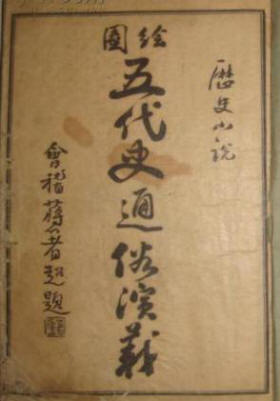 歷史小說
繪圖
五代史通俗演義
會稽蔣箸超題